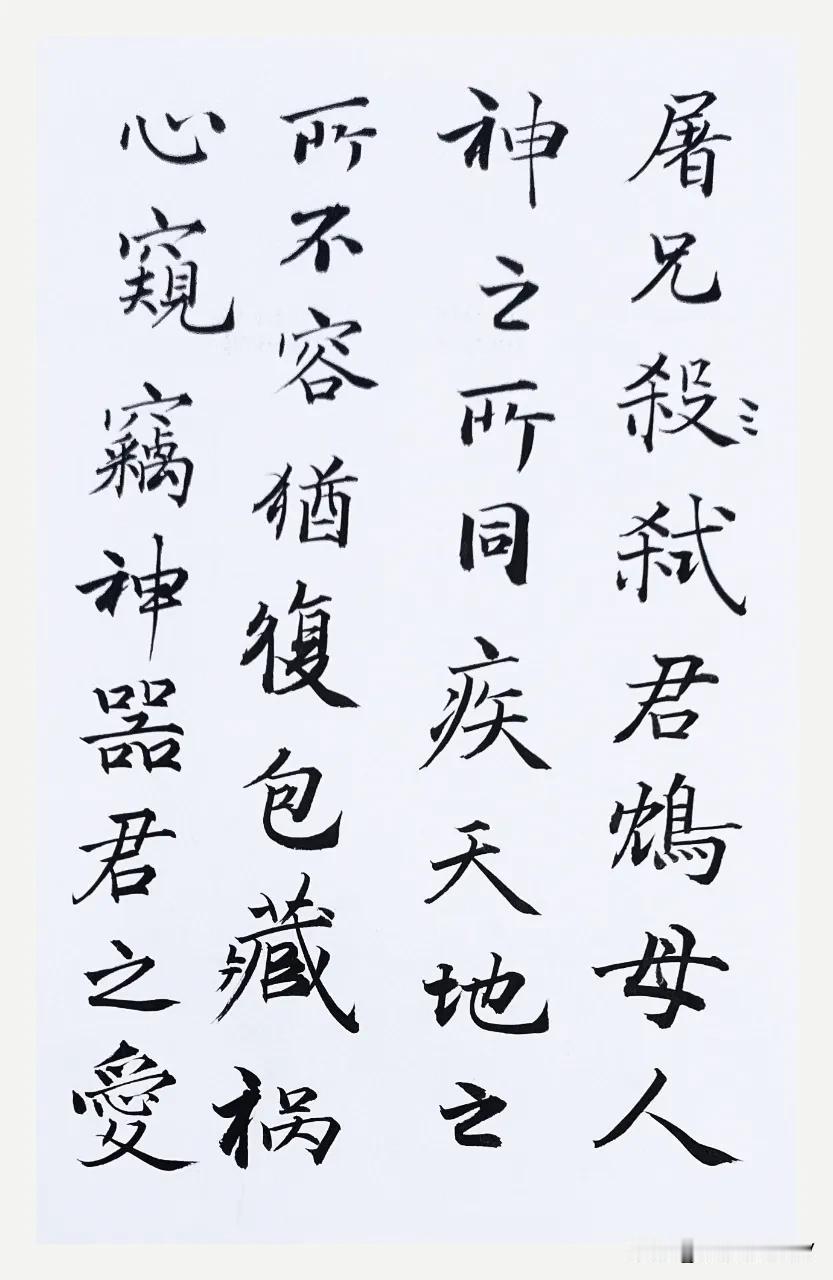 屠兄殺弒君鴆母人
神之所同疾天地之
所不容猶復包藏祸
心窺竊神器君之愛